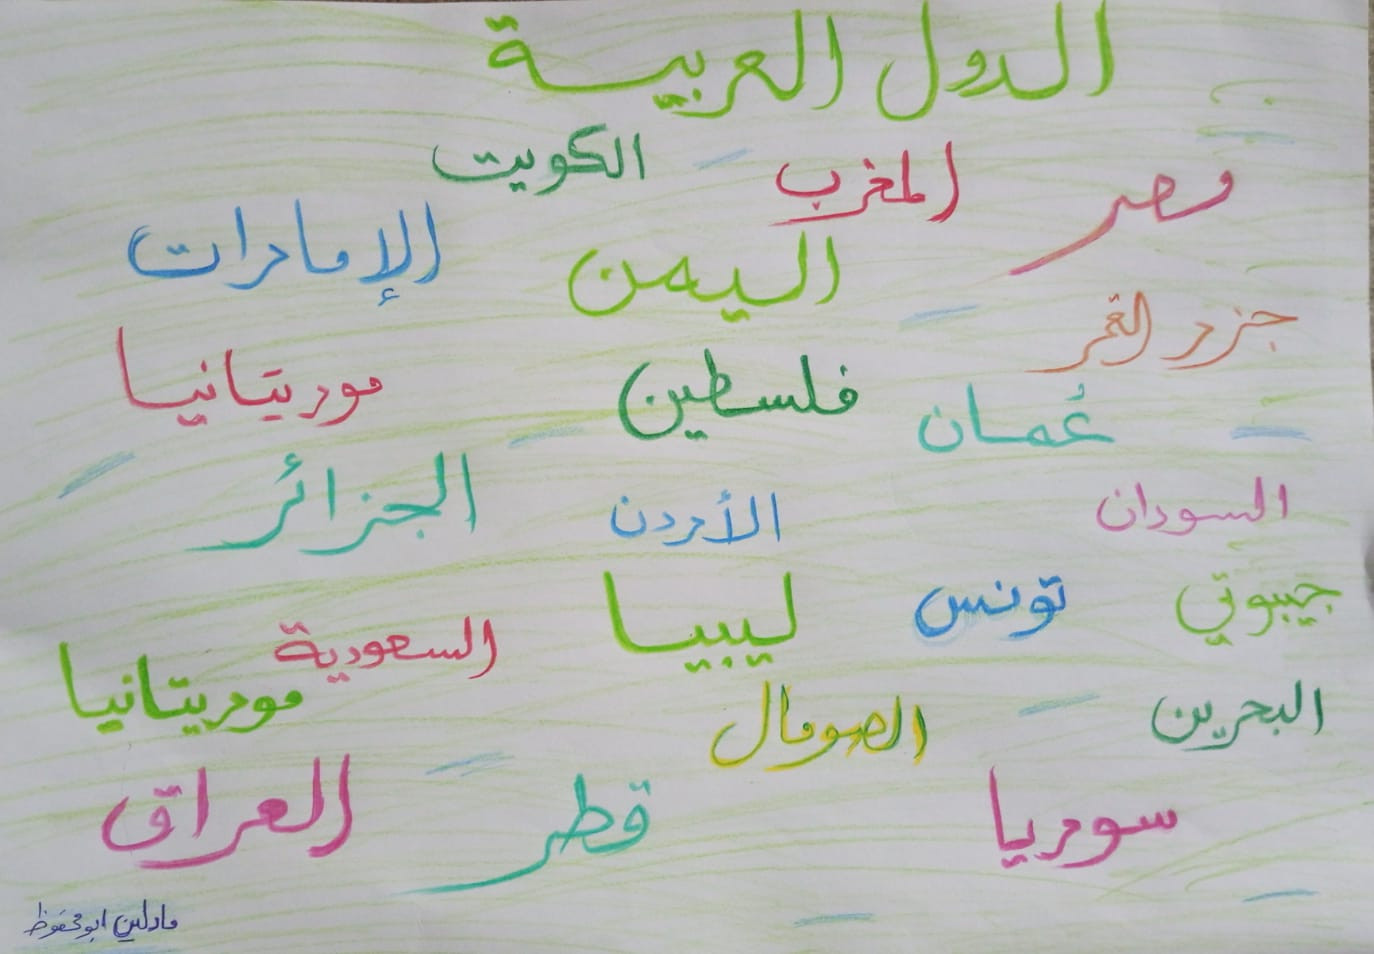 الدول العربية
مصر
المغرب
الكويت
الإمارات
اليمن
جزر القمر
موريتانيا
فلسطين
عُمان
الجزائر
الأردن
السودان
جيبوتي
تونس
ليبيا
السعودية
موريتانيا
البحرين
الصومال
سوريا
قطر
العراق
مادلين ابو محفوظ